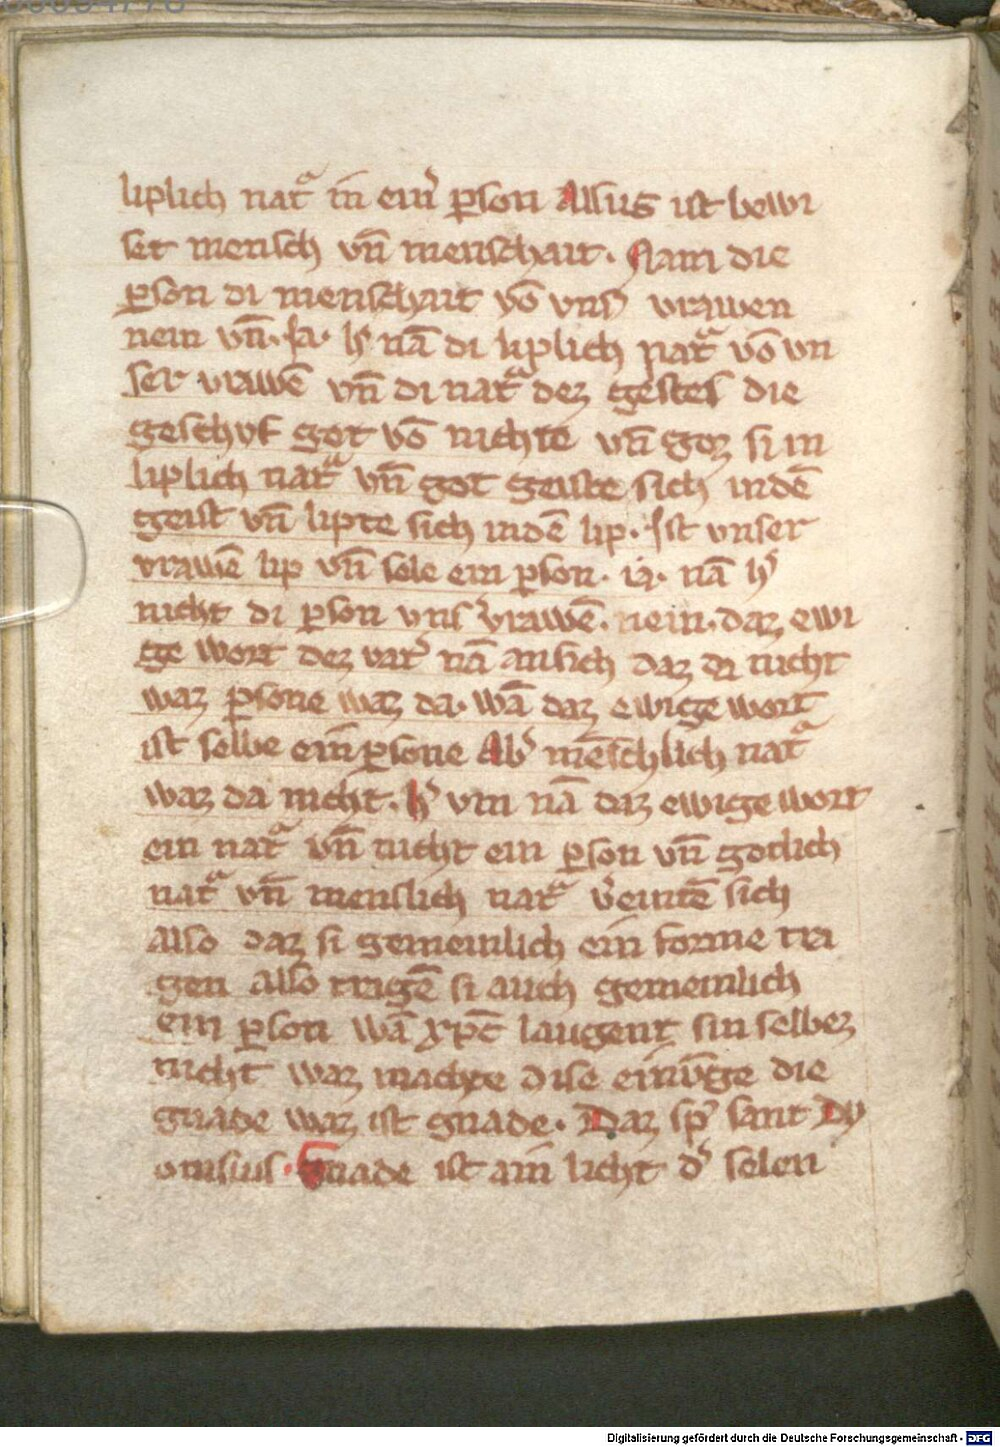 liplich natᵃ in einˀ ꝑson Allus ist bewi
set mensch vn̄ menschait. Nam die
ꝑson di menschait vō vnsˀ vrawen
nein vn̄. ſa. hˀ nā di liplich natᵃ vō vn
ser vrawē vn̄ di natᵃ dez gestes die
geschvf got vō nichte vn̄ goz si in
liplich natᵃ vn̄ got geiste sich indē
geist vn̄ lipte sich indē lip. Ist vnser
vrawē lip vn̄ sele ein ꝑson. ia. nā hˀ
nicht di ꝑson vnsˀ vrawē. nein. daz ewi
ge wort dez vatˀ nā ansich daz da nicht
waz ꝑsone waz da. wā daz ewige wort
ist selbe ein ꝑsone Abˀ mēschlich natᵃ
waz da nicht. hˀ vm nā daz ewige wort
ein natᵃ vn̄ nicht ein ꝑson vn̄ gotlich
natᵃ vn̄ menslich natᵃ vˀeintē sich
also daz si gemeinlich ein forme tra
gen also trigē si auch gemeinlich
ein ꝑson wā xp̄c laugent sin selbez
nicht waz machte dise einv̄ge die
gnade waz ist gnade. Daz spˀ sant Dy
onisius. Gnade ist ain licht dˀ selen
Digitalisierung gefördert durch die Deutsche Forschungsgemeinschaft - DFG